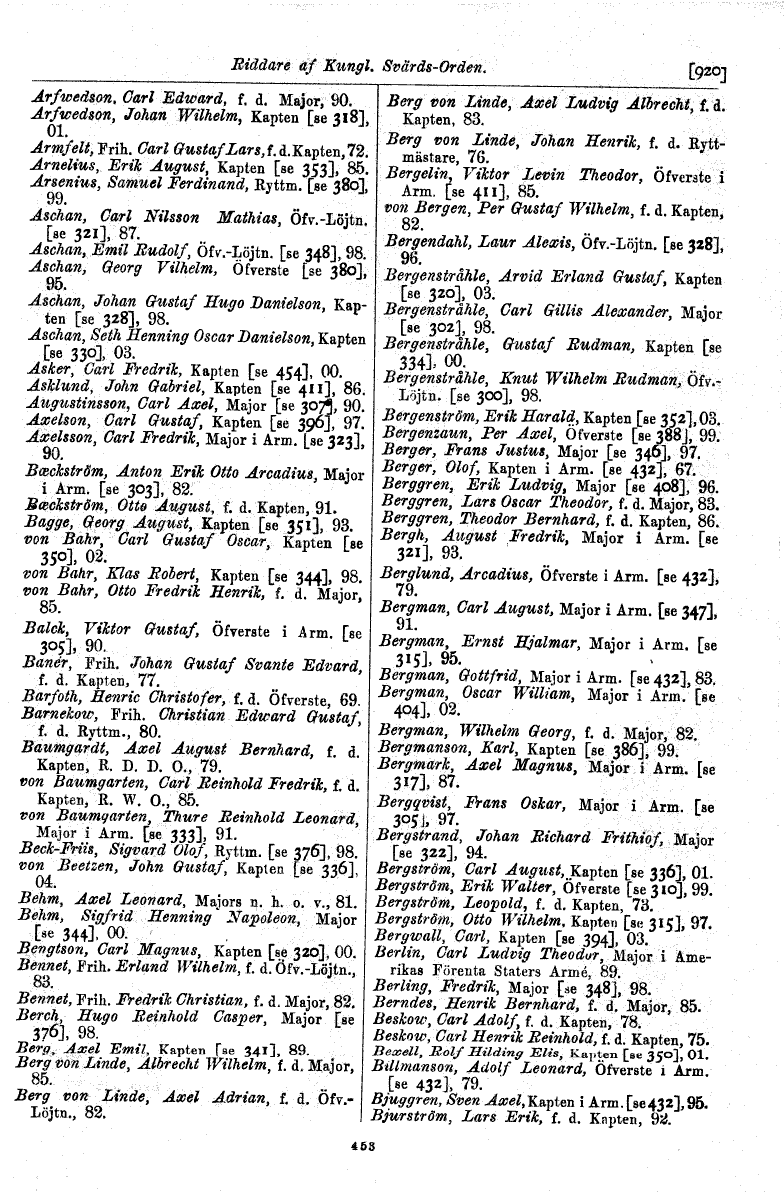 Riddare af Kungl. Svärds-Orden.
[920]
Arfwedson, Carl Edward, f. d. Major, 90.
Arfwedson, Johan Wilhelm, Kapten [se 318],
01.
Armfelt, Frih. Carl Gustaf Lars, f. d. Kapten, 72.
Arnelius, Erik August, Kapten [se 353], 85.
Arsenius, Samuel Ferdinand, Ryttm. [se 380],
99.
Aschan, Carl Nilsson Mathias, Öfv.-Löjtn.
[se 321], 87.
Aschan, Emil Rudolf, Öfv.-Löjtn. [se 348], 98.
Aschan, Georg Vilhelm, Öfverste [se 380],
95.
Aschan, Johan Gustaf Hugo Danielson, Kap-
ten [se 328], 98.
Aschan, Seth Henning Oscar Danielson, Kapten
[se 330], 03.
Asker, Carl Fredrik, Kapten [se 454], 00.
Asklund, John Gabriel, Kapten [se 411], 86.
Augustinsson, Carl Axel, Major [se 307], 90.
Axelson, Carl Gustaf, Kapten [se 396], 97.
Axelsson, Carl Fredrik, Major i Arm. [se 323],
90.
Bæckström, Anton Erik Otto Arcadius, Major
i Arm. [se 303], 82.
Bæckström, Otto August, f. d. Kapten, 91.
Bagge, Georg August, Kapten [se 351], 93.
von Bahr, Carl Gustaf Oscar, Kapten [se
350], 02.
von Bahr, Klas Robert, Kapten [se 344], 98.
von Bahr, Otto Fredrik Henrik, f. d. Major,
85.
Balck, Viktor Gustaf, Öfverste i Arm. [se
305], 90.
Banér, Frih. Johan Gustaf Svante Edvard,
f. d. Kapten, 77.
Barfoth, Henric Christofer, f. d. Öfverste, 69.
Barnekow, Frih. Christian Edward Gustaf,
f. d. Ryttm., 80.
Baumgardt, Axel August Bernhard, f. d.
Kapten, R. D. D. O., 79.
von Baumgarten, Carl Reinhold Fredrik, f. d.
Kapten, R. W. O., 85.
von Baumgarten, Thure Reinhold Leonard,
Major i Arm. [se 333], 91.
Beck-Friis, Sigvard Olof, Ryttm. [se 376], 98.
von Beetzen, John Gustaf, Kapten [se 336],
04.
Behm, Axel Leonard, Majors n. h. o. v., 81.
Behm, Sigfrid Henning Napoleon, Major
[se 344], 00.
Bengtson, Carl Magnus, Kapten [se 320], 00.
Bennet, Frih. Erland Wilhelm, f. d. Öfv.-Löjtn.,
83.
Bennet, Frih. Fredrik Christian, f. d. Major, 82.
Berch, Hugo Reinhold Casper, Major [se
376], 98.
Berg, Axel Emil, Kapten [se 341], 89.
Berg von Linde, Albrecht Wilhelm, f. d. Major,
85.
Berg von Linde, Axel Adrian, f. d. Öfv.-
Löjtn., 82.
Berg von Linde, Axel Ludvig Albrecht, f. d.
Kapten, 83.
Berg von Linde, Johan Henrik, f. d. Rytt-
mästare, 76.
Bergelin, Viktor Levin Theodor, Öfverste i
Arm. [se 411], 85.
von Bergen, Per Gustaf Wilhelm, f. d. Kapten,
82.
Bergendahl, Laur Alexis, Öfv.-Löjtn. [se 328],
96.
Bergenstråhle, Arvid Erland Gustaf, Kapten
[se 320], 03.
Bergenstråhle, Carl Gillis Alexander, Major
[se 302], 98.
Bergenstråhle, Gustaf Rudman, Kapten [se
334], 00.
Bergenstråhle, Knut Wilhelm Rudman, Öfv.-
Löjtn. [se 300], 98.
Bergenström, Erik Harald, Kapten [se 352], 03.
Bergenzaun, Per Axel, Öfverste [se 388], 99.
Berger, Frans Justus, Major [se 346], 97.
Berger, Olof, Kapten i Arm. [se 432], 67.
Berggren, Erik Ludvig, Major [se 408], 96.
Berggren, Lars Oscar Theodor, f. d. Major, 83.
Berggren, Theodor Bernhard, f. d. Kapten, 86.
Bergh, August Fredrik, Major i Arm. [se
321], 93.
Berglund, Arcadius, Öfverste i Arm. [se 432],
79.
Bergman, Carl August, Major i Arm. [se 347],
91.
Bergman, Ernst Hjalmar, Major i Arm. [se
315], 95.
Bergman, Gottfrid, Major i Arm. [se 432], 83.
Bergman, Oscar William, Major i Arm. [se
404], 02.
Bergman, Wilhelm Georg, f. d. Major, 82.
Bergmanson, Karl, Kapten [se 386], 99.
Bergmark, Axel Magnus, Major i Arm. [se
317], 87.
Bergqvist, Frans Oskar, Major i Arm. [se
305], 97.
Bergstrand, Johan Richard Frithiof, Major
[se 322], 94.
Bergström, Carl August, Kapten [se 336], 01.
Bergström, Erik Walter, Öfverste [se 310], 99.
Bergström, Leopold, f. d. Kapten, 73.
Bergström, Otto Wilhelm, Kapten [se 315], 97.
Bergwall, Carl, Kapten [se 394], 03.
Berlin, Carl Ludvig Theodor, Major i Ame-
rikas Förenta Staters Armé, 89.
Berling, Fredrik, Major [se 348], 98.
Berndes, Henrik Bernhard, f. d. Major, 85.
Beskow, Carl Adolf, f. d. Kapten, 78.
Beskow, Carl Henrik Reinhold, f. d. Kapten, 75.
Bexell, Rolf Hilding Elis, Kapten [se 350], 01.
Billmanson, Adolf Leonard, Öfverste i Arm.
[se 432], 79.
Bjuggren, Sven Axel, Kapten i Arm. [se 432], 95.
Bjurström, Lars Erik, f. d. Kapten, 92.
453